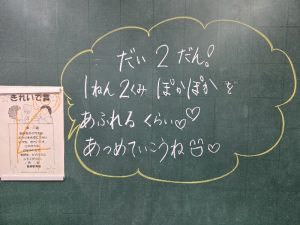 だい2だん!
1ねん2くみ ぽかぽか を
あふれる くらい♡♡
あつめていこうね♡
きれいで賞